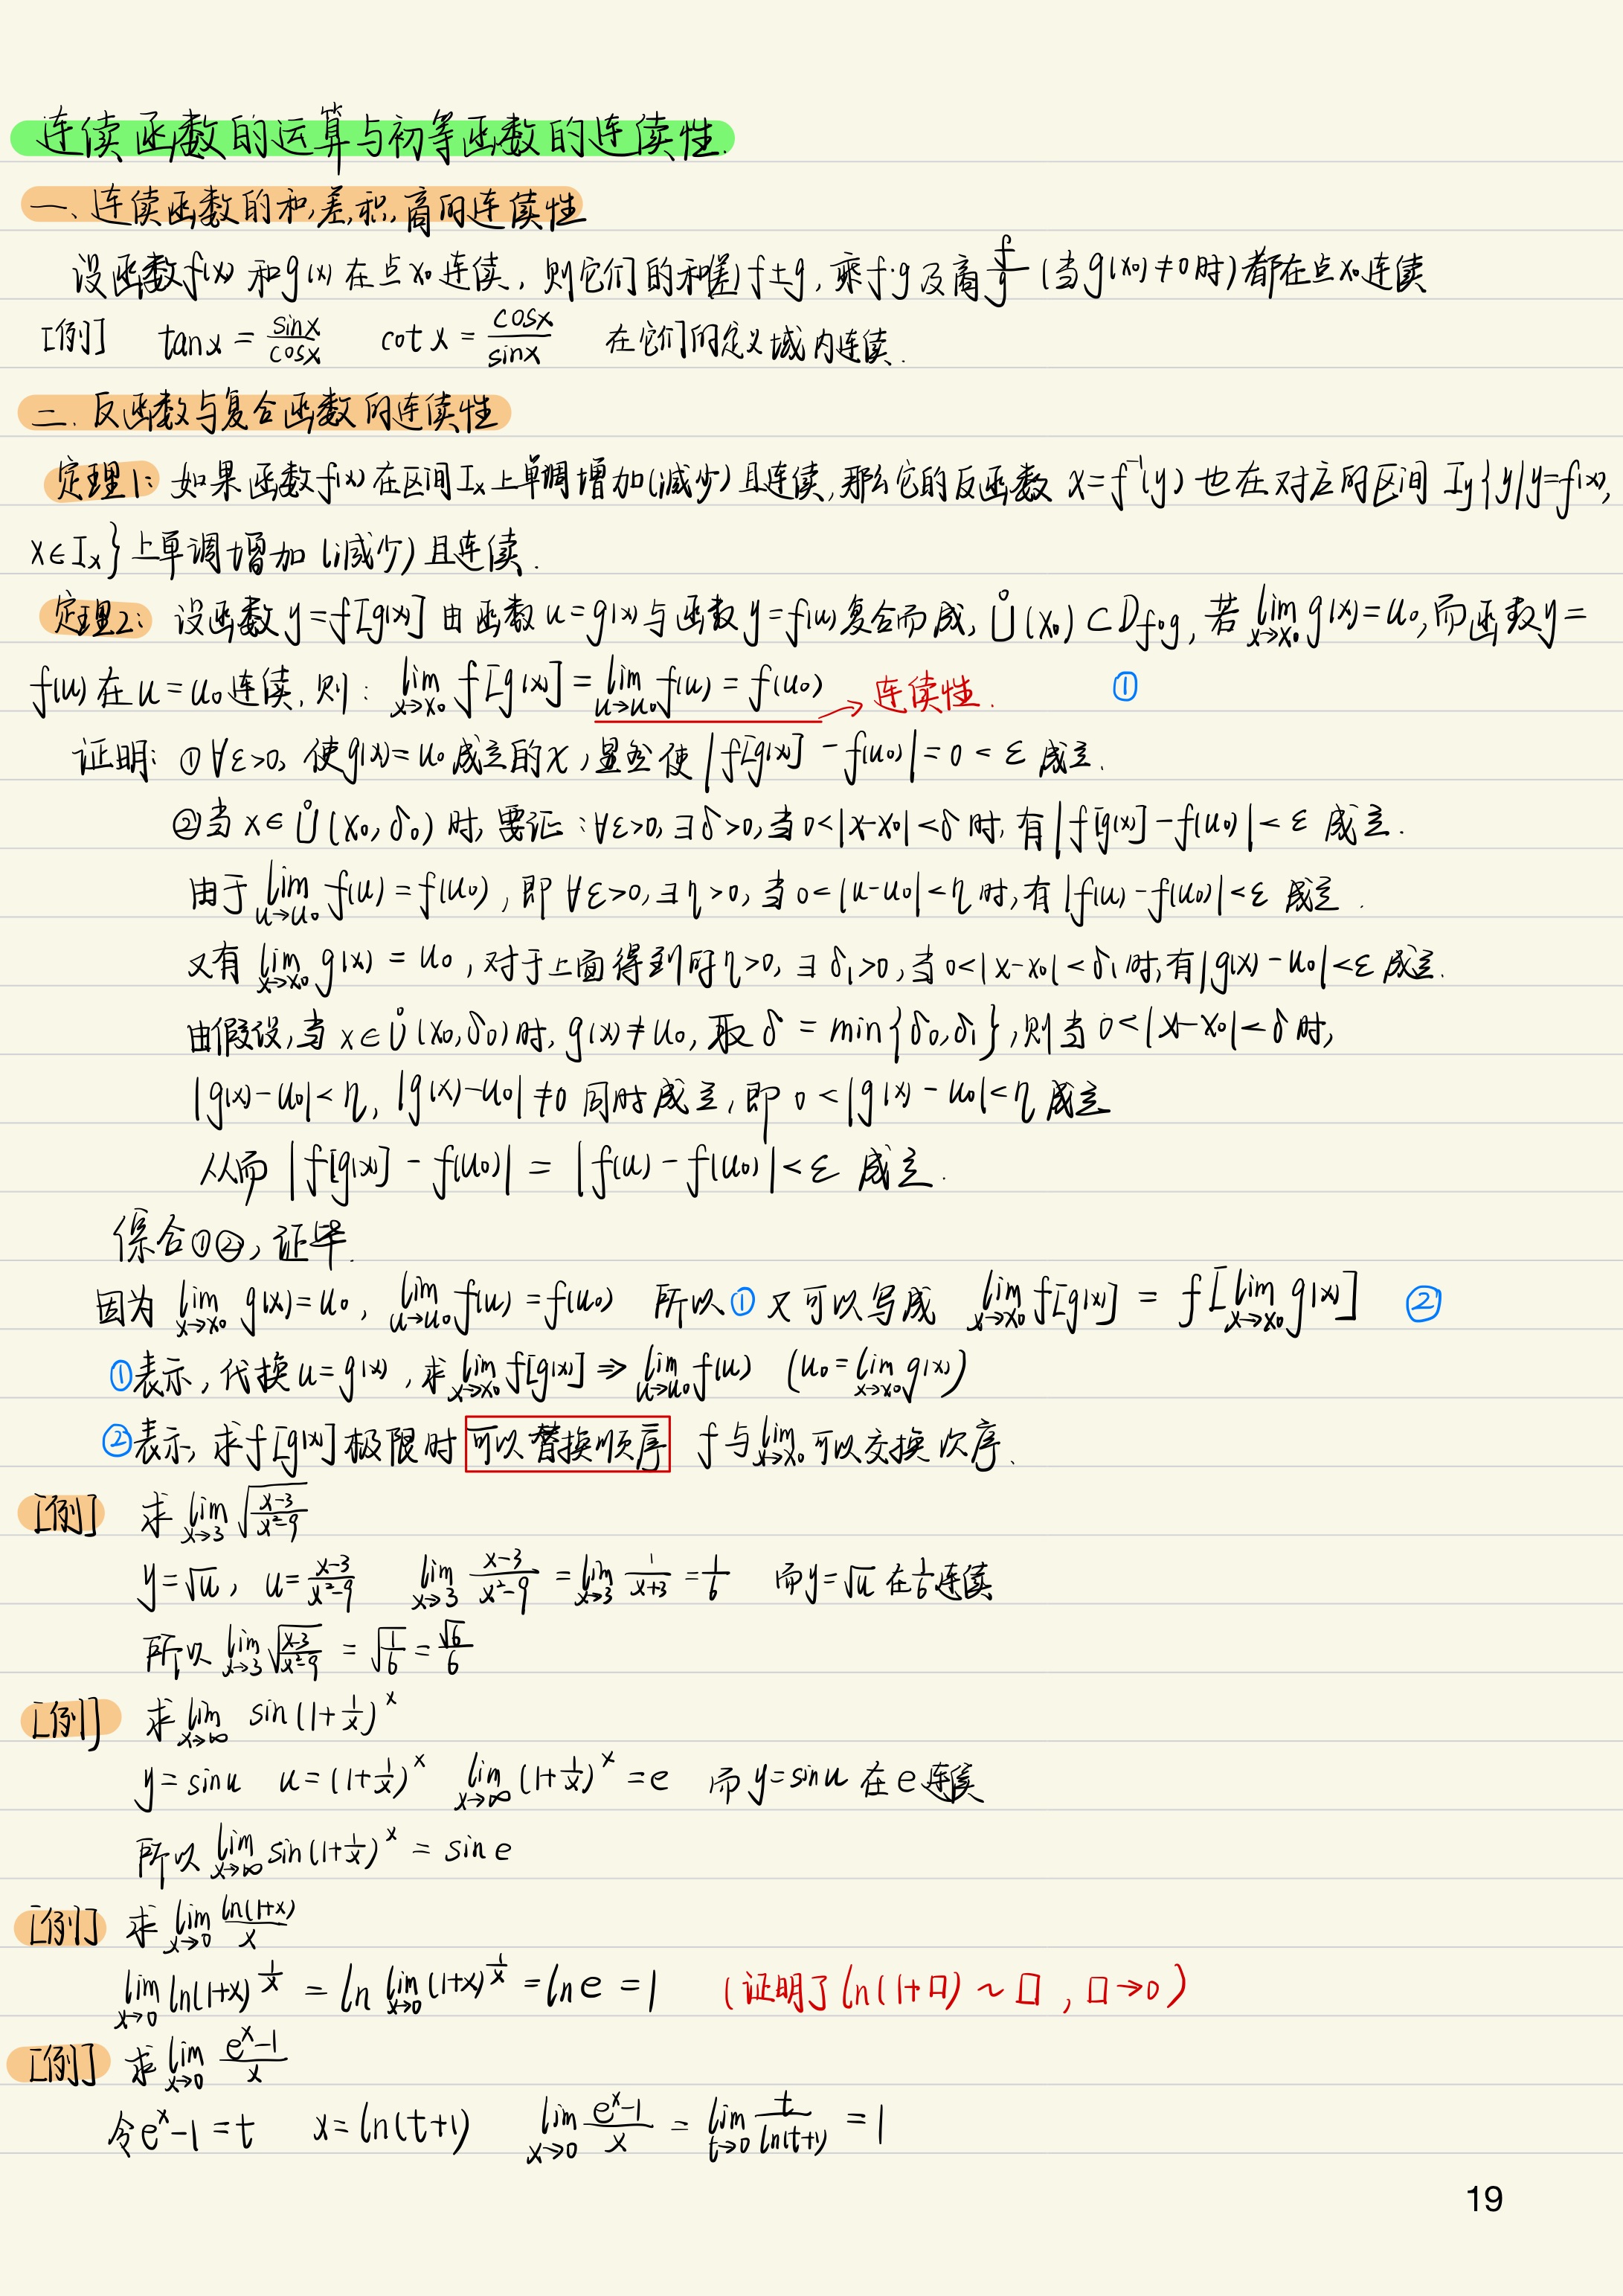 连续函数的运算与初等函数的连续性.
一、连续函数的和,差,积,商的连续性
设函数f(x)和g(x)在点x₀连续，则它们的和(差)f±g，乘f·g及商f/g(当g(x₀)≠0时)都在点x₀连续
[例] tanx=sinx/cosx cotx=cosx/sinx 在它们的定义域内连续.
二.反函数与复合函数的连续性
定理1:如果函数f(x)在区间Iₓ上单调增加(减少)且连续,那么它的反函数x=f⁻¹(y)也在对应的区间 Iy{y|y=f(x),
x∈Iₓ}上单调增加(减少)且连续.
定理2:设函数y=f[g(x)]由函数u=g(x)与函数y=f(u)复合而成,Ů(x₀)⊂Df∘g,若lim x→x₀ g(x)=u₀,而函数y=
f(u)在u=u₀连续,则:lim x→x₀ f[g(x)]=lim u→u₀ f(u)=f(u₀) → 连续性. ①
证明:①∀ε>0,使g(x)=u₀成立的x,显然使|f[g(x)]-f(u₀)|=0<ε成立.
②当x∈Ů(x₀,δ₀)时,要证:∀ε>0,∃δ>0,当0<|x-x₀|<δ时,有|f[g(x)]-f(u₀)|<ε成立.
由于lim u→u₀ f(u)=f(u₀),即∀ε>0,∃η>0,当0<|u-u₀|<η时,有|f(u)-f(u₀)|<ε成立.
又有lim x→x₀ g(x)=u₀,对于上面得到的η>0,∃δ₁>0,当0<|x-x₀|<δ₁时,有|g(x)-u₀|<ε成立.
由假设,当x∈Ů(x₀,δ₀)时,g(x)≠u₀,取δ=min{δ₀,δ₁},则当0<|x-x₀|<δ时,
|g(x)-u₀|<η,|g(x)-u₀|≠0同时成立,即0<|g(x)-u₀|<η成立
从而|f[g(x)]-f(u₀)|=|f(u)-f(u₀)|<ε成立.
综合①②,证毕.
因为lim x→x₀ g(x)=u₀,lim u→u₀ f(u)=f(u₀) 所以①又可以写成 lim x→x₀ f[g(x)]=f[lim x→x₀ g(x)] ②
①表示,代换u=g(x),求lim x→x₀ f[g(x)]⇒lim u→u₀ f(u) (u₀=lim x→x₀ g(x))
②表示,求f[g(x)]极限时可以替换顺序 f与lim x→x₀可以交换次序.
[例] 求lim x→3 √((x-3)/(x²-9))
y=√u, u=(x-3)/(x²-9) lim x→3 (x-3)/(x²-9)=lim x→3 1/(x+3)=1/6 而y=√u在1/6连续
所以lim x→3 √((x-3)/(x²-9))=√(1/6)=√6/6
[例] 求lim x→∞ sin(1+1/x)^x
y=sinu u=(1+1/x)^x lim x→∞ (1+1/x)^x=e 而y=sinu在e连续
所以lim x→∞ sin(1+1/x)^x=sin e
[例] 求lim x→0 ln(1+x)/x
lim x→0 ln(1+x)^(1/x)=ln lim x→0 (1+x)^(1/x)=ln e=1 (证明了ln(1+□)~□,□→0)
[例] 求lim x→0 (e^x-1)/x
令e^x-1=t x=ln(t+1) lim x→0 (e^x-1)/x=lim t→0 t/ln(t+1)=1
19